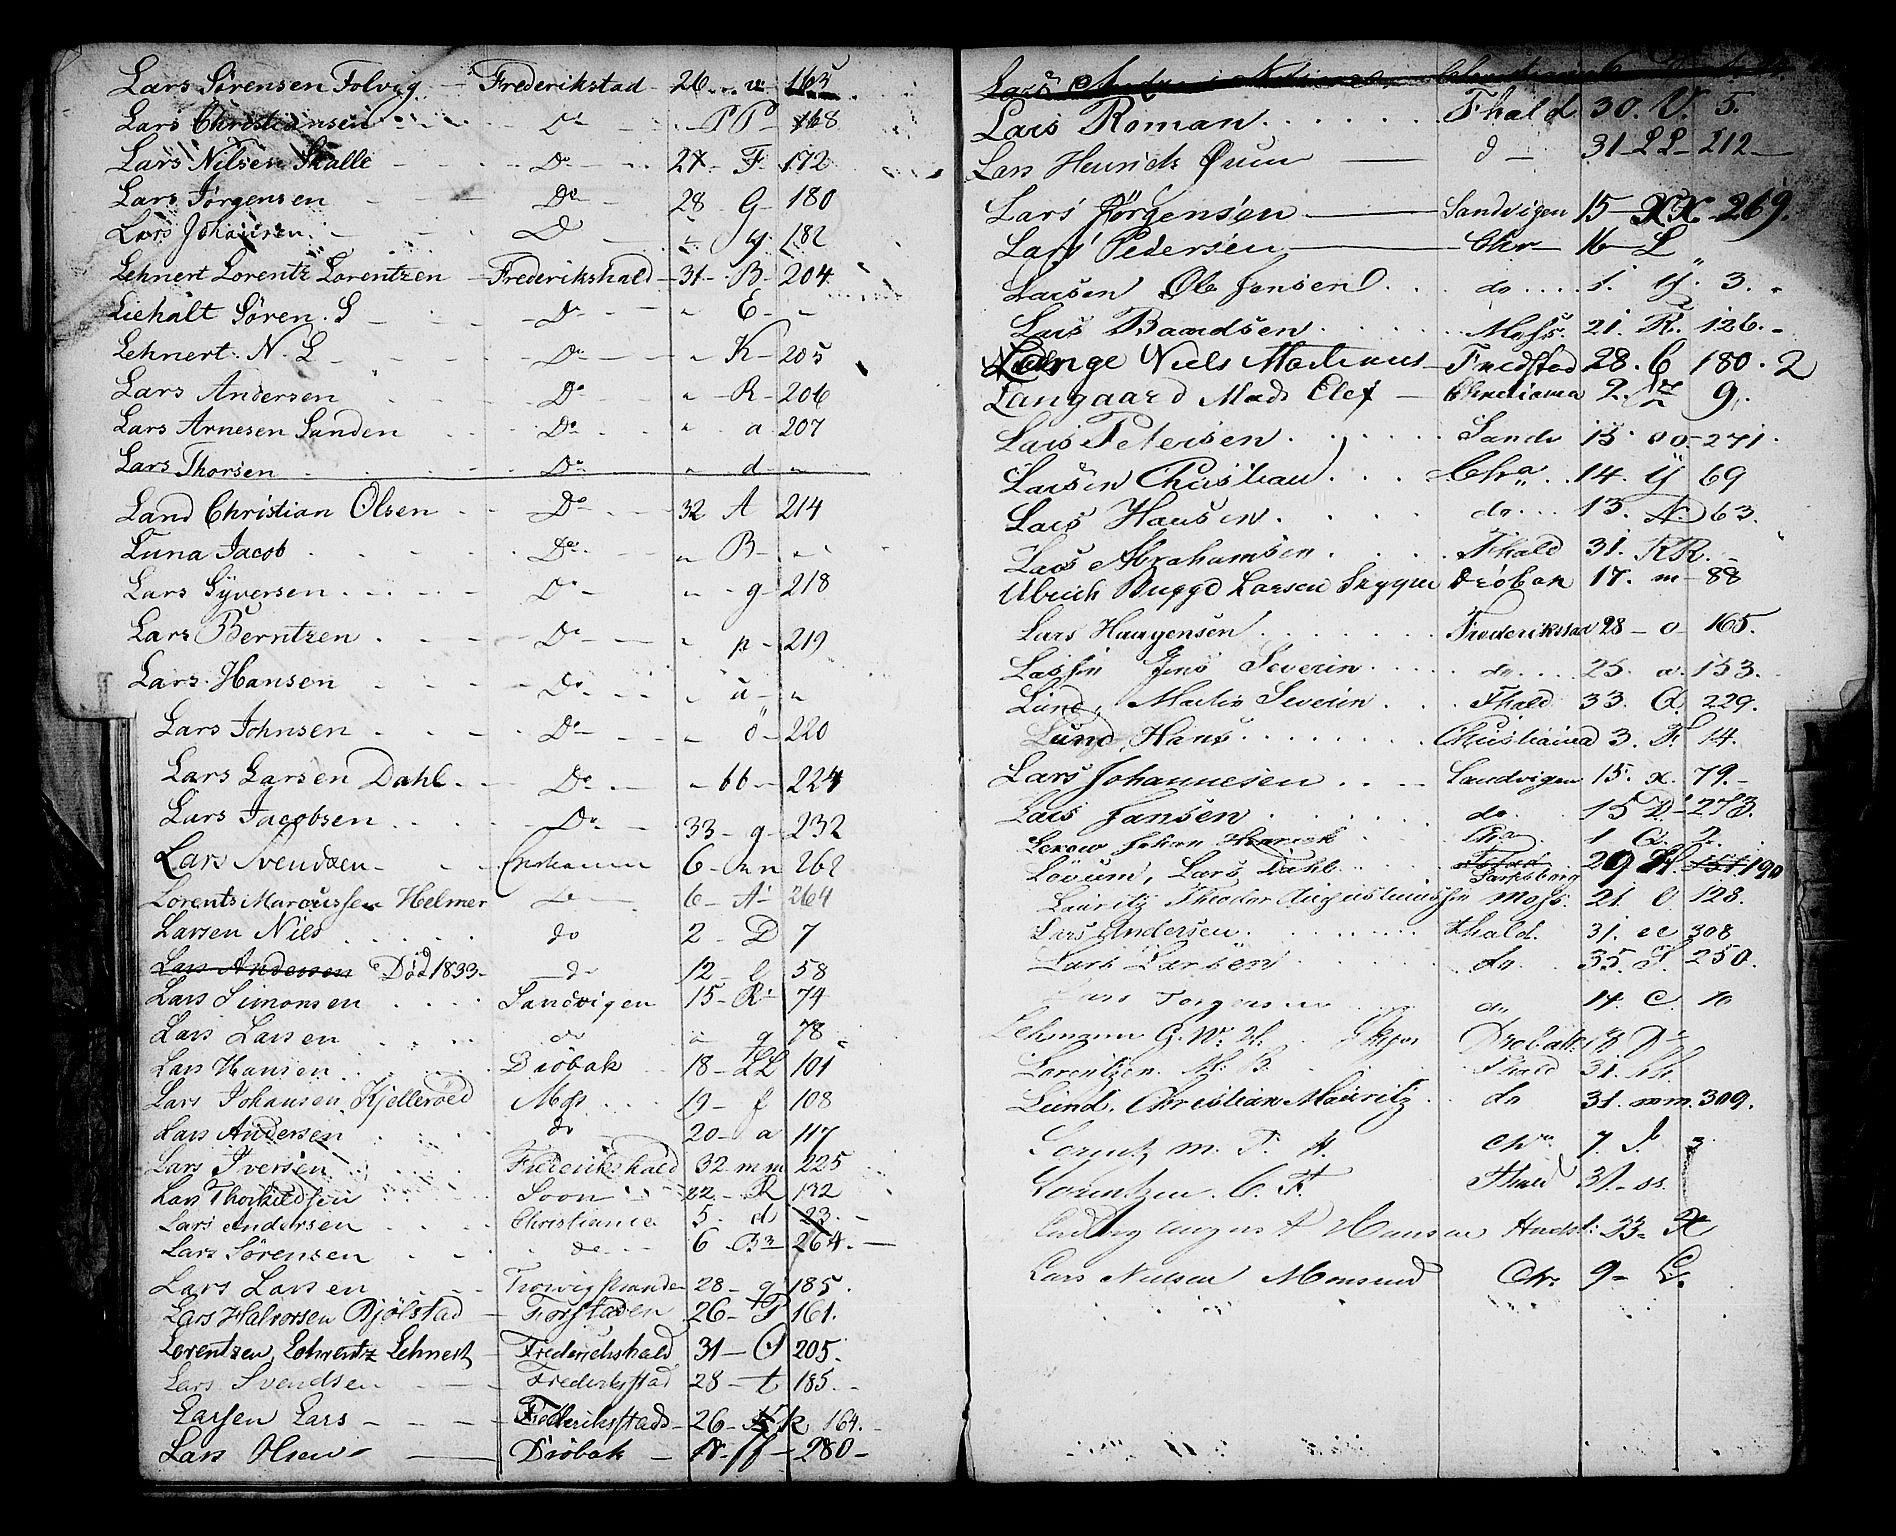 Lars Sørensen Folvig - Frederikstad - 26 - v - 165
Lars Christiansen - Do - PP - 168
Lars Nilsen Skalle - Do - 27 - F - 172
Lars Jørgensen - Do - 28 - G - 180
Lars Johansen - D - " - y - 182
Lehnert Lorentz Lorentzen - Frederikshald - 31 - B - 204
Liehalt Søren. S - Do - " E - "
Lehnert. N. L - Do - " - K - 205
Lars Andersen - Do - " - R - 206
Lars Arnesen Sanden - Do - " a - 207
Lars Thorsen - Do - " d - "
Land Christian Olsen - Do - 32 A - 214
Luna Jacob - Do - " B - "
Lars Syversen - Do - " - g - 218
Lars Berntzen - Do - " p - 219
Lars Hansen - Do - " u - "
Lars Johnsen - Do - " ö - 220
Lars Larsen Dahl - Do - " bb - 224
Lars Jacobsen - Do - 33 - g - 232
Lars Svendsen - Christiania - 6 - nn - 262
Lorents Marcussen Helmer - do - 6 - A - 264
Larsen Nils - do - 2 - D 7
Lars Andersen Død 1833 - d - 12 - 58
Lars Simonsen - Sandvigen 15 - R - 74
Lars Larsen - do " g 78
Lars Hansen - Drøbak 18 - LL 101
Lars Johansen Kjellerøed Moss 19 - f 108
Lars Andersen - do 20 - a 117
Lars Iversen - Frederikshald 32 mm 225
Lars Thorkildsen - Soon 22 - R 132
Lars Andersen - Christiania 5. d 23
Lars Sørensen - do 6 - B 264. -
Lars Larsen - 28 - g 185.
Lars Halvorsen Bjølstad - 26 - P 161.
Lorentzen Lohrentz Lehnert - Frederichshald 31 - O 205.
Lars Svendsen - Frederiksstad 28 - t 185. -
Larsen Lars - Frederiksstad - 26 - k 164.
Lars Olsen - Drøbak - ff - 280 -
Lars
Lars Roman - Fhald 30. V. 5.
Lars Henrich - d - 31 - LL - 212 -
Lars Jørgensen - Sandvigen 15 - XX - 269.
Lars Pedersen - Chr - 16 - L "
Larsen Ole Jensen - do 1. y. 3.
Lars Baardsen - Moss. 21. R. 126. -
Lange Niels - Fredstad 28. C 180. 2
Langaard Mads Elef - Christiania 2. 9.
Lars Petersen - Sandv 15. oo - 271.
Larsen Christian - Chra 14. y 69
Lars Hansen - do 13. N. 63.
Lars Abrahamsen - Fhald 31. RR. -
Ulrich Larsen Drøbak 17. m - 88
Lars Haagensen - Frederikstad 28 - o - 165.
Jens Severin - do 25. a. 153.
Lund, Martin Severin - Fhald 33. Q. 229.
Lund, Hans - Christiania 3. F. 14.
Lars Johannesen - Sandvigen 15. x. 79. -
Lars Jansen - do 15 D - 273.
Johan Henrich - Chra 1 Q. 2.
Løvum, Lars Dahl - Sarpsborg 29 H 151 190
Lauritz Theodor Moss. 21. O. 128.
Lars Andersen - Fhald. 31. ee 308
Lars Larsen - do 35. S. 250.
Lars Torgersen - do 14. C. 10
Lehmann G. W. H. Drøbak
Lorentzen. M. B. - Fhald 31. hh.
Lund, Christian Mauritz - do 31. mm. 309.
Lorentz M. T. A. - Chra 7. I.
Lorentzen. C. F. - Fhald 31 - ss.
Ludvig August Hansen Fredst: 23. H
Lars Nielsen - Chr. 9 - L.